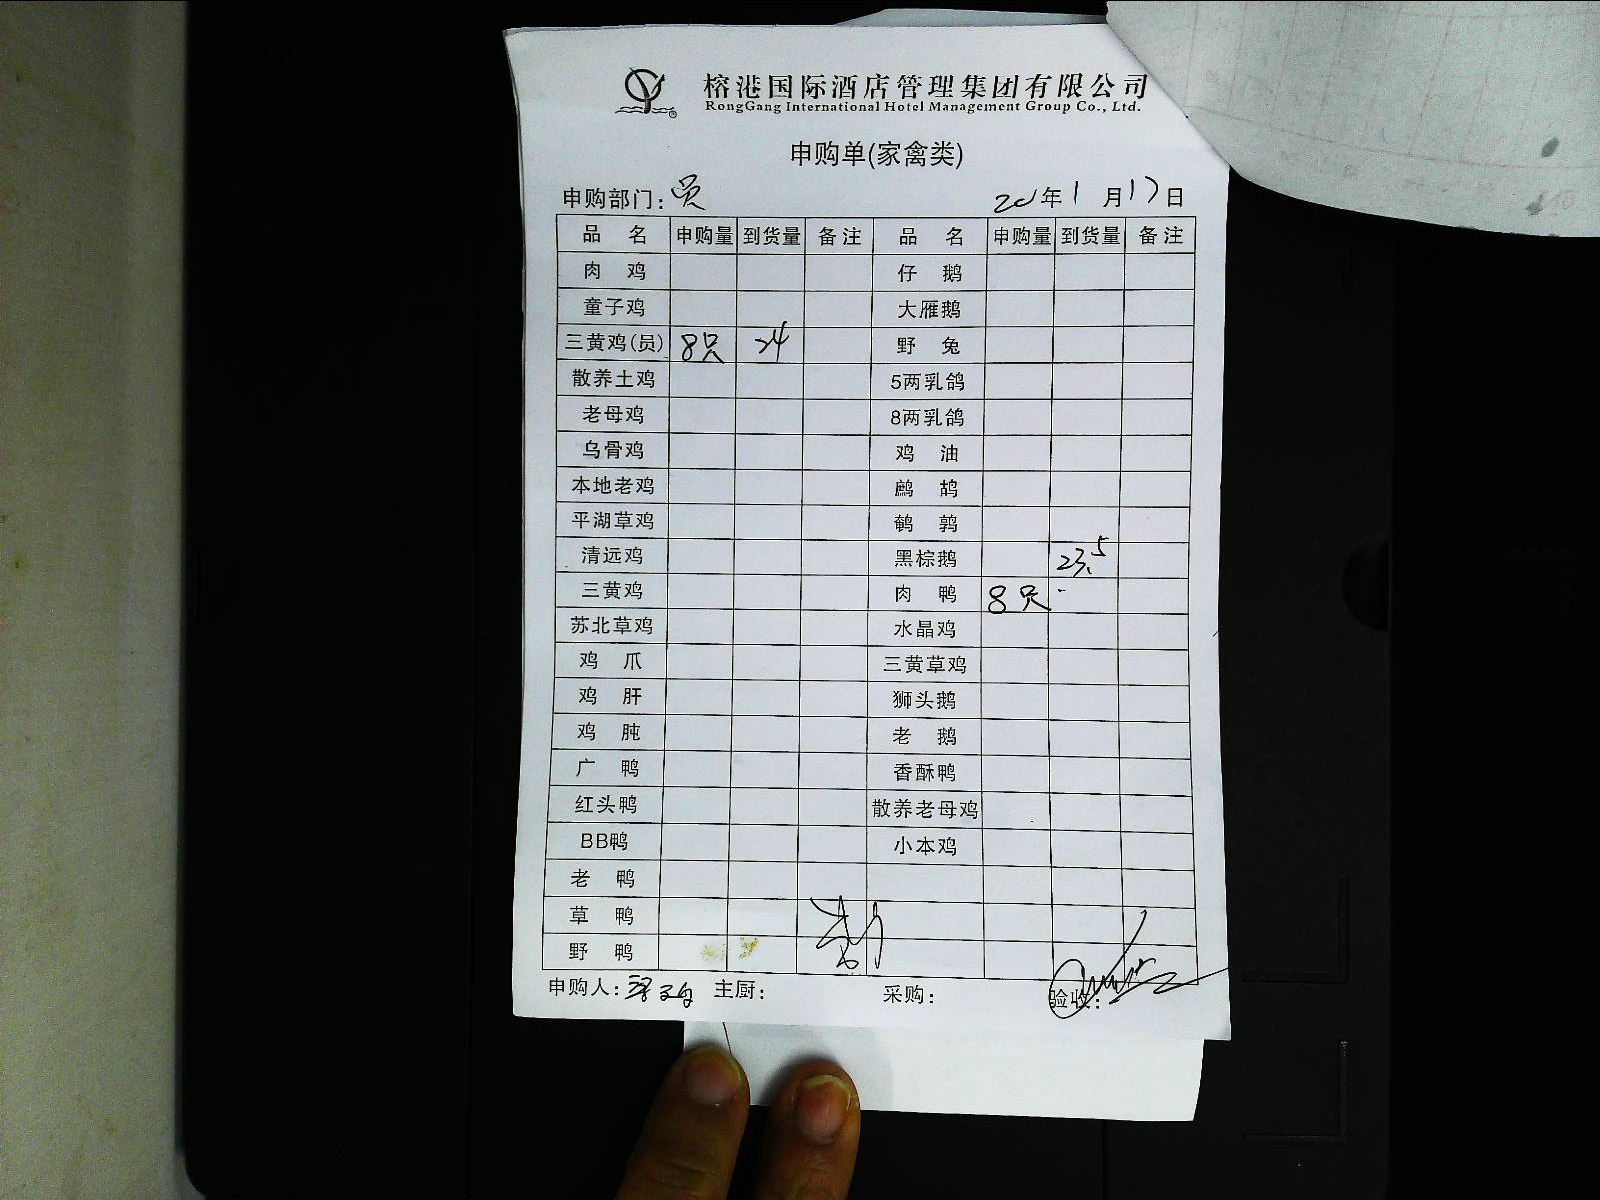 榕港国际酒店管理集团有限公司
RongGang International Hotel Management Group Co., Ltd.
申购单(家禽类)
申购部门：员 20 年 1 月 17 日
品 名 申购量 到货量 备注 品 名 申购量 到货量 备注
肉 鸡 仔 鹅
童子鸡 大雁鹅
三黄鸡(员) 8只 24 野 兔
散养土鸡 5两乳鸽
老母鸡 8两乳鸽
乌骨鸡 鸡 油
本地老鸡 鹧 鸪
平湖草鸡 鹌 鹑
清远鸡 黑棕鹅 23.5
三黄鸡 肉 鸭 8只
苏北草鸡 水晶鸡
鸡 爪 三黄草鸡
鸡 肝 狮头鹅
鸡 肫 老 鹅
广 鸭 香酥鸭
红头鸭 散养老母鸡
BB鸭 小本鸡
老 鸭
草 鸭
野 鸭
申购人： 主厨： 采购： 验收：